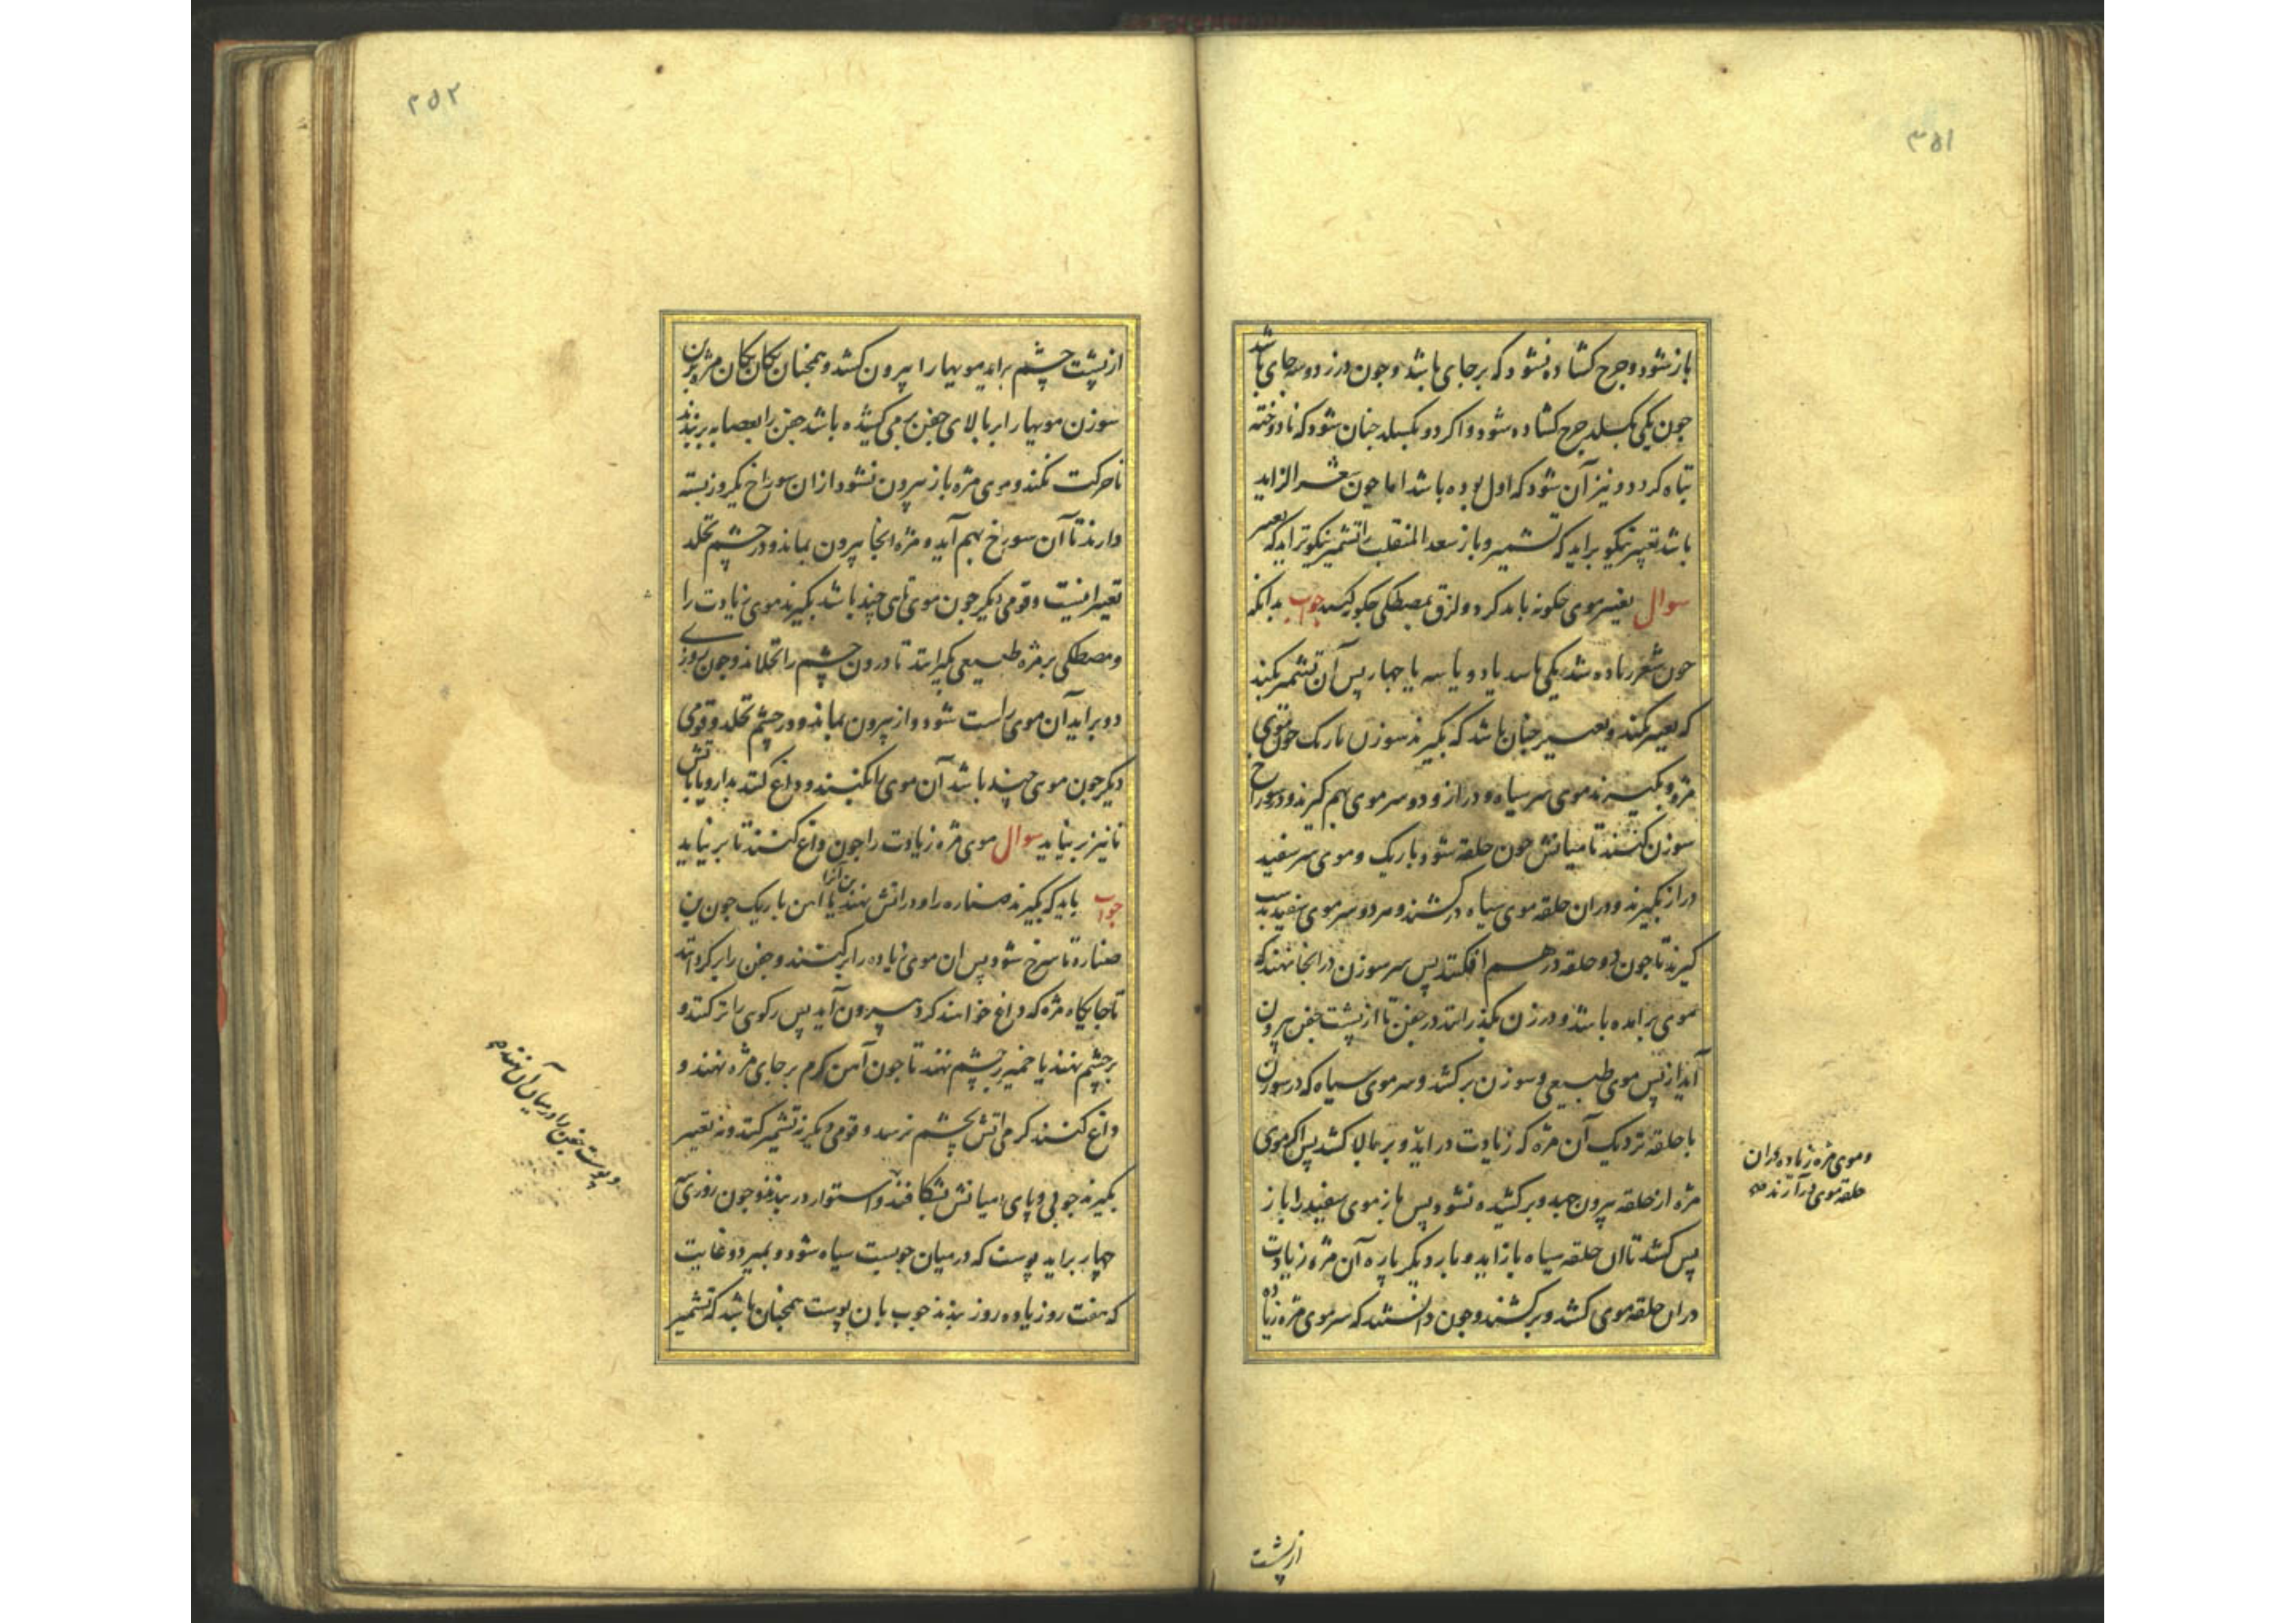 ۳۵۱
باز شود و جرح کشاده نشود که بر جای باشد و جون درز دو سه جای باشد
جون یکی بکسلد جرح کشاده شود و اکر دو بکسلد جنان شود که نادوخته
تباه کردد و نیز آن شود که اول بوده باشد اما جون شعر الزاید
باشد تعییر نیکو براید که تشمیر و باز سعد المنقلب را تشمیر نیکوتر اید که تعییر
سوال تغییر موی جکونه باید کرد و لزق بمصطکی جکونه کنند جواب بدانکه
جون شعر زیاده شد یکی باشد یا دو یا سه یا جهار پس آن تشمیر نکنند
که تعییر کنند و تعییر جنان باشد که بکیرند سوزن باریک جون موی
مژه و بکیرند موی سر سیاه و دراز و دو سر موی بهم کیرند و در سوراخ
سوزن کنند تا میانش جون حلقه شود باریک و موی سر سفید
دراز بکیرند و در آن حلقه موی سیاه در کشند و هر دو سر موی سفید بدست
کیرند تا جون دو حلقه در هم افکنند پس سر سوزن در انجا نهند که
موی برامده باشد و در زن بکذرانند در جفن تا از پشت جفن بیرون
آید از پس موی طبیعی و سوزن برکشد و سر موی سیاه که در سوزن
با حلقه نزدیک آن مژه که زیادت در اید و بر بالا کشد پس اکر موی
مژه از حلقه بیرون جهد و برکشیده نشود پس باز موی سفید را باز
پس کشد تا آن حلقه سیاه باز اید و بار دیکر باره آن مژه زیادت
در آن حلقه موی کشد و برکشند و جون دانستند که سر موی مژه زیاده
و موی مژه زیاده در آن
حلقه موی در آرند صح
از پشت
۳۵۲
از پشت جشم براید مویها را بیرون کشد و همجنان یکان یکان مژه برین
سوزن مویها را بر بالای جفن برمی کشیده باشد جفن را بعصابه بربندند
تا حرکت نکند و موی مژه باز بیرون نشود از آن سوراخ یکروز بسته
دارند تا آن سوراخ بهم آید و مژه انجا بیرون بماند و در جشم نخلد
تعییر اینست و قومی دیکر جون موی تای جند باشد بکیرند موی زیادت را
و مصطکی بر مژه طبیعی بکیرانند تا درون جشم را نخلاند و جون روزی
دو براید آن موی راست شود و از بیرون بماند و در جشم نخلد و قومی
دیکر جون موی جند باشد آن موی را بکنند و داغ کنند بدارو یا باتش
تا نیز برنیاید سوال موی مژه زیادت را جون داغ کنند تا برنیاید
جواب باید که بکیرند صناره را و در اتش نهند یا آهن باریک جون بن
بن آنرا
صناره تا سرخ شود پس ان موی زیاده را برکنند و جفن را برکردانند
تا جایکاه مژه که داغ خواهند کرد بیرون آید پس رکوی را تر کنند و
بر جشم نهند یا خمیر بر جشم نهند تا جون آهن کرم بر جای مژه نهند و
داغ کنند کرمی آتش بجشم نرسد و قومی دیکر نه تشمیر کنند و نه تعییر
بکیرند جوبی و پای امیانش بشکافند و استوار در بندند و جون روزی
جهار براید پوست که در میان جوبست سیاه شود و بمیرد و غایت
که هفت روز یا ده روز بندند جوب با ن پوست همجنان باشد که تشمیر
و پوست جفن را در میان آن نهند صح